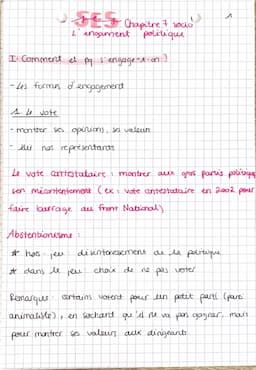 1
SES Chapitre 7 socio
L'engagement politique
I Comment et pq s'engage-t-on ?
- Les formes d'engagement
1. Le vote
- montrer ses opinions, sa valeur
- élir nos représentants
Le vote contestataire : montrer aux gros partis politique
son mécontentement (ex : vote contestataire en 2002 pour
faire barrage au Front National)
Abstentionisme :
* hors-jeu : désintéressement de la politique
* dans le jeu : choix de ne pas voter
Remarque : certains votent pour un petit parti (parti
animaliste), en sachant qu'il ne va pas gagner, mais
pour montrer ses valeurs aux dirigeants.